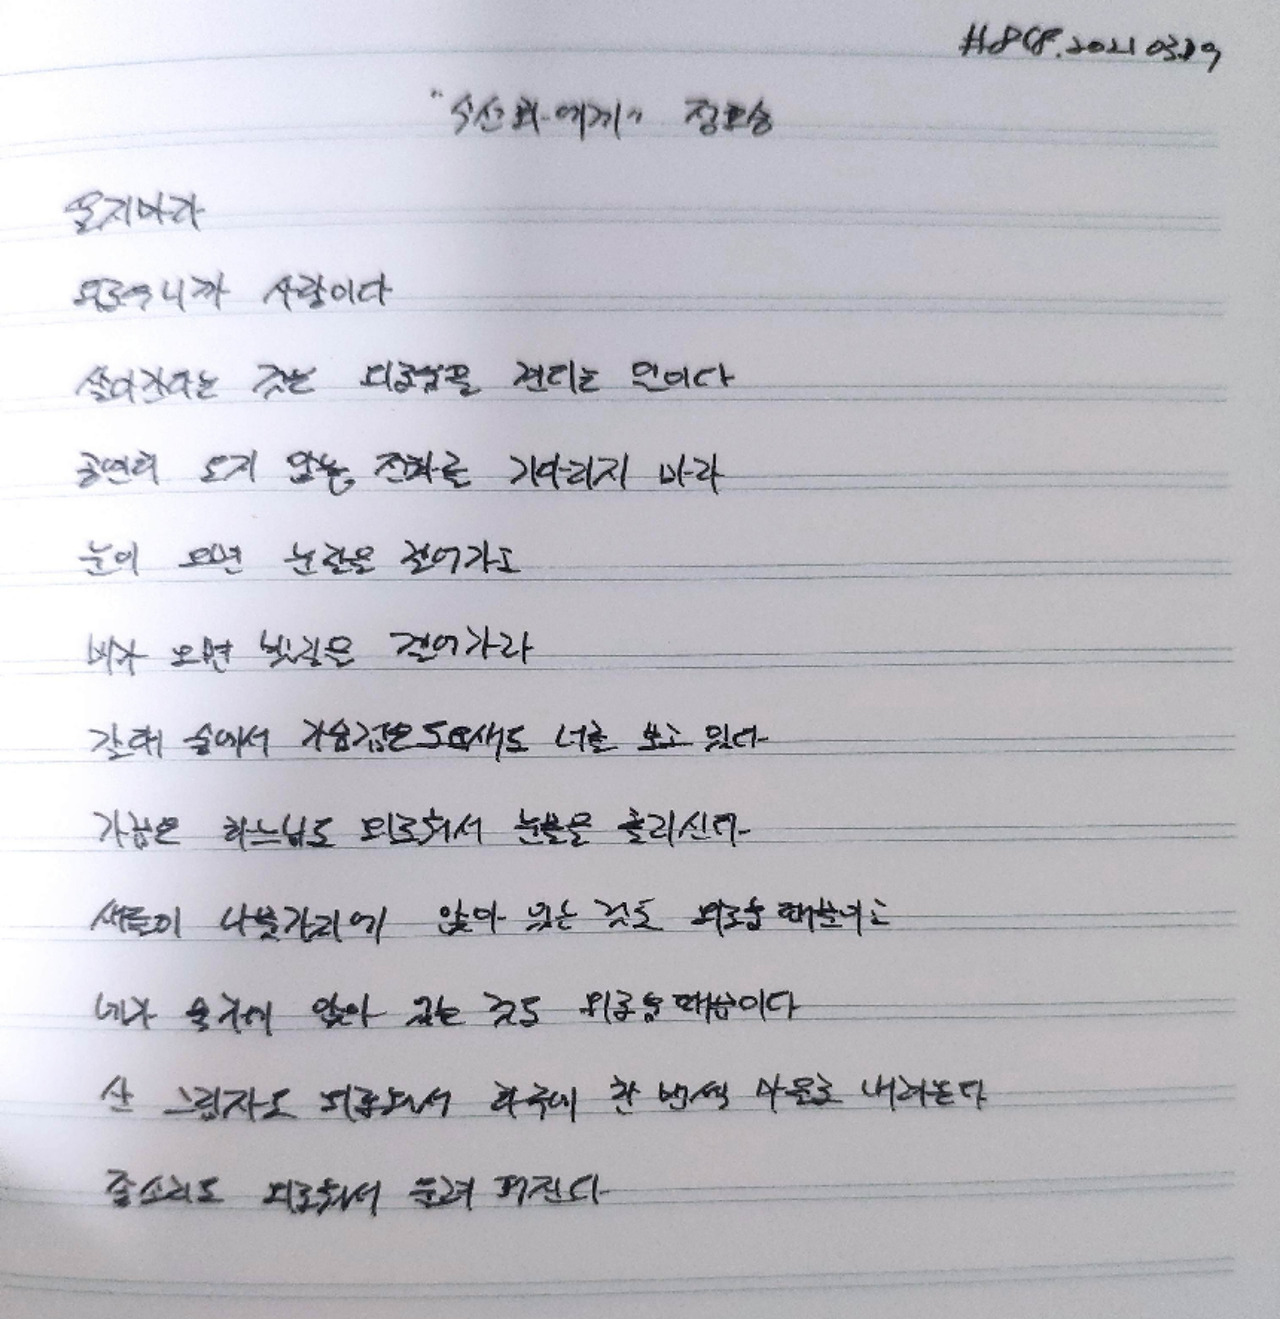 2021 03.19
"수선화에게" 정호승
울지마라
외로우니까 사람이다
살아간다는 것은 외로움을 견디는 일이다
공연히 오지 않는 전화를 기다리지 마라
눈이 오면 눈길을 걸어가고
비가 오면 빗길을 걸어가라
갈대 숲에서 가슴검은도요새도 너를 보고 있다
가끔은 하느님도 외로워서 눈물을 흘리신다
새들이 나뭇가지에 앉아 있는 것도 외로움 때문이고
네가 물가에 앉아 있는 것도 외로움 때문이다
산 그림자도 외로워서 하루에 한 번씩 마을로 내려온다
종소리도 외로워서 울려 퍼진다